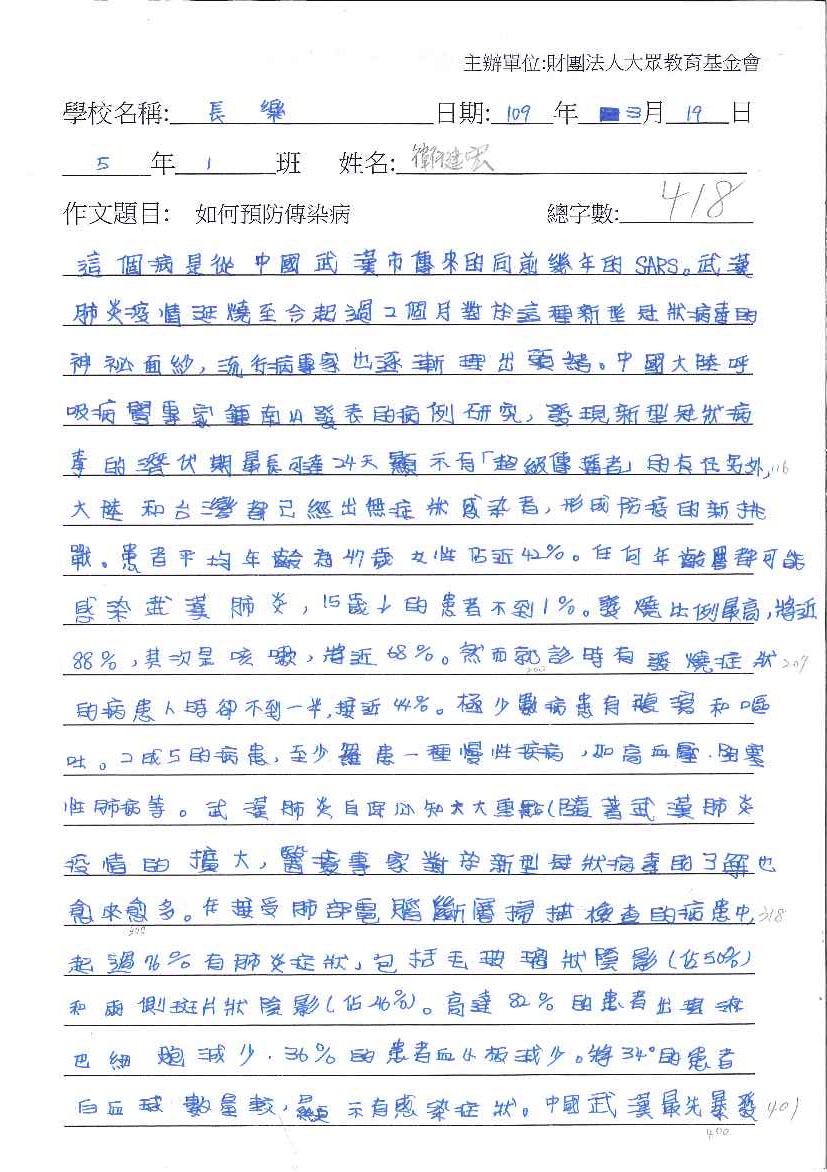 主辦單位:財團法人大眾教育基金會
學校名稱: 長 樂 日期: 109 年 3月 19 日
5 年 1 班 姓名: 衛建宏
作文題目: 如何預防傳染病 總字數: 418
這個病是從中國武漢市傳來的同前幾年的SARS。武漢
肺炎疫情延燒至今起過2個月對於這種新型冠狀病毒的
神祕面紗,流行病專家也逐漸理出頭緒。中國大陸呼
吸病醫專家鍾南山發表的病例研究,發現新型冠狀病
毒的潛伏期最長可達24天顯示有「超級傳播者」的存在另外, 116
大陸和台灣都已經出無症狀感染者,形成防疫的新挑
戰。患者平均年齡為47歲女性佔近42%。任何年齡層都可能
感染武漢肺炎,15歲↓的患者不到1%。發燒比例最高,將近
88%,其次是咳嗽,將近68%。然而就診時有發燒症狀 207
200
的病患人時卻不到一半,接近44%。極少數病患有腹瀉和嘔
吐。2成5的病患,至少羅患一種慢性疾病,如高血壓.阻塞
性肺病等。武漢肺炎自保必知大大重點(隨著武漢肺炎
疫情的擴大,醫療專家對於新型冠狀病毒的了解也
愈來愈多。在接受肺部電腦斷層掃描檢查的病患中, 318
300
起過76%有肺炎症狀,包括毛玻璃狀陰影(佔50%)
和兩側斑片狀陰影(佔46%)。高達82%的患者出現淋
巴細胞減少.36%的患者血小板減少。將34°的患者
白血球數量較,顯示有感染症狀。中國武漢最先暴發 401
400